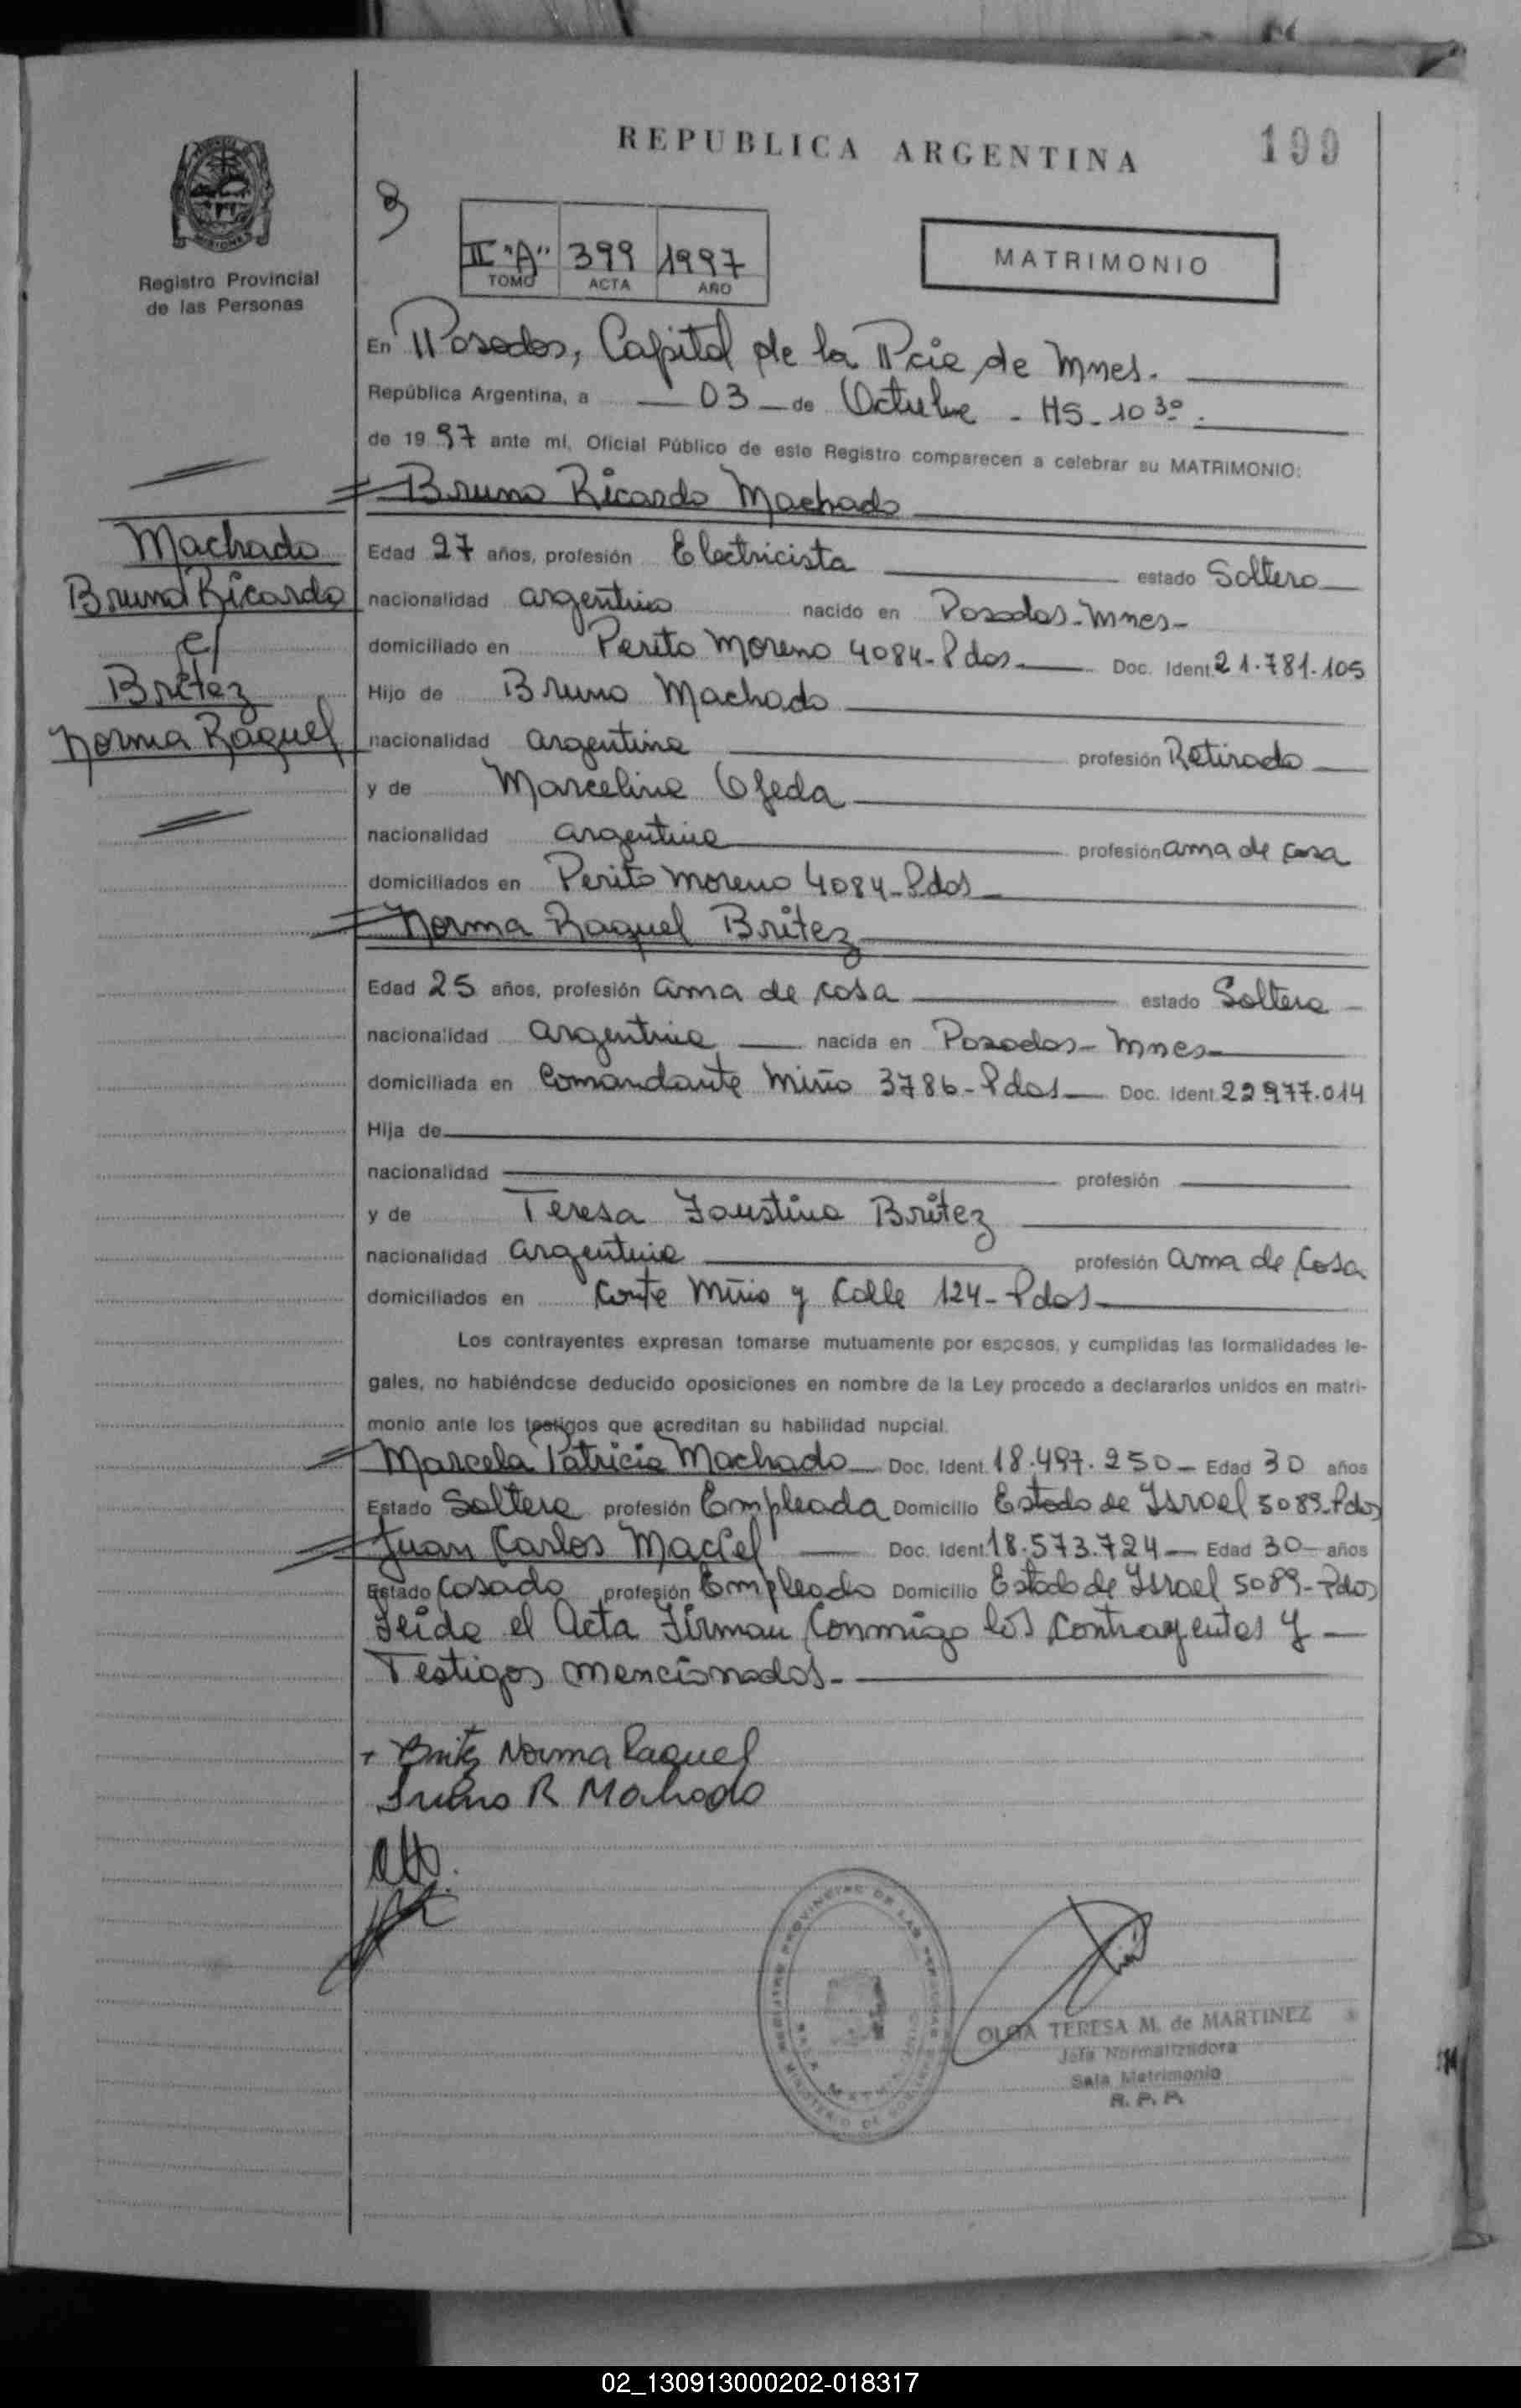 REPUBLICA ARGENTINA
199
Registro Provincial
de las Personas
II "A" 399 1997
TOMO ACTA AÑO
MATRIMONIO
En Posadas, Capital de la Pcia de Mnes.
República Argentina, a 03 de Octubre - HS. 10 30.
de 1997 ante mí, Oficial Público de este Registro comparecen a celebrar su MATRIMONIO:
Bruno Ricardo Machado
Machado
Bruno Ricardo
c/
Britez
Norma Raquel
Edad 27 años, profesión Electricista estado Soltero
nacionalidad argentino nacido en Posadas-Mnes-
domiciliado en Perito Moreno 4084-Pdas Doc. Ident. 21.781.105
Hijo de Bruno Machado
nacionalidad argentina profesión Retirado
y de Marcelina Ojeda
nacionalidad argentina profesión ama de casa
domiciliados en Perito Moreno 4084-Pdas
Norma Raquel Britez
Edad 25 años, profesión ama de casa estado Soltera
nacionalidad argentina nacida en Posadas-Mnes-
domiciliada en Comandante Miño 3786-Pdas Doc. Ident. 22.977.014
Hija de
nacionalidad profesión
y de Teresa Faustina Britez
nacionalidad argentina profesión ama de casa
domiciliados en Cmte Miño y Calle 124-Pdas
Los contrayentes expresan tomarse mutuamente por esposos, y cumplidas las formalidades le-
gales, no habiéndose deducido oposiciones en nombre de la Ley procedo a declararlos unidos en matri-
monio ante los testigos que acreditan su habilidad nupcial.
Marcela Patricia Machado Doc. Ident. 18.497.250 Edad 30 años
Estado Soltera profesión Empleada Domicilio Estado de Israel 5089-Pdas
Juan Carlos Maciel Doc. Ident. 18.573.724 Edad 30 años
Estado Casado profesión Empleado Domicilio Estado de Israel 5089-Pdas
Leida el Acta Firman Conmigo los Contrayentes y
Testigos mencionados.
+ Britez Norma Raquel
Bruno R Machado
OLGA TERESA M. de MARTINEZ
Jefa Normalizadora
Sala Matrimonio
R. P. P.
02_130913000202-018317